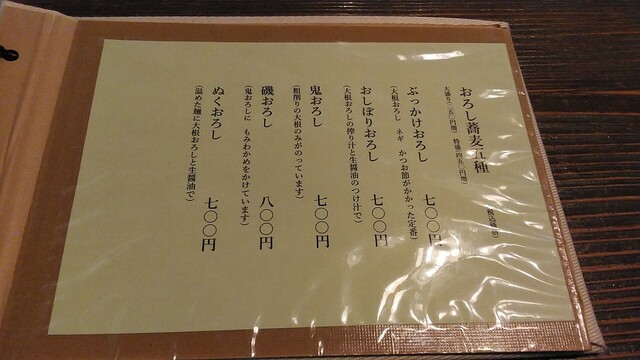 おろし蕎麦五種
大盛り(二五〇円増) 特盛(四五〇円増)
(税込価格)
ぶっかけおろし 七〇〇円
(大根おろし ネギ かつお節がかかった定番)
おしぼりおろし 七〇〇円
(大根おろしの搾り汁と生醤油のつけ汁で)
鬼おろし 七〇〇円
(粗削りの大根のみがのっています)
磯おろし 八〇〇円
(鬼おろしに もみわかめをかけています)
ぬくおろし 七〇〇円
(温めた麺に大根おろしと生醤油で)